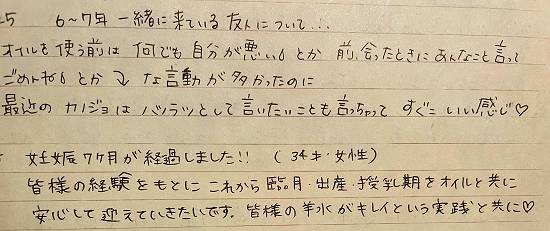 5 6〜7年 一緒に来ている友人について...
オイルを使う前は 何でも自分が悪い とか 前、会ったときにあんなこと言って
ごめんね とか↘な言動が多かったのに
最近の カノジョはハツラツとして言いたいことも言っちゃって すごく いい感じ♡
妊娠7ヶ月が経過しました!! (34才・女性)
皆様の経験をもとに これから 臨月・出産・授乳期をオイルと共に
安心して迎えていきたいです。皆様の羊水がキレイという実践と共に♡